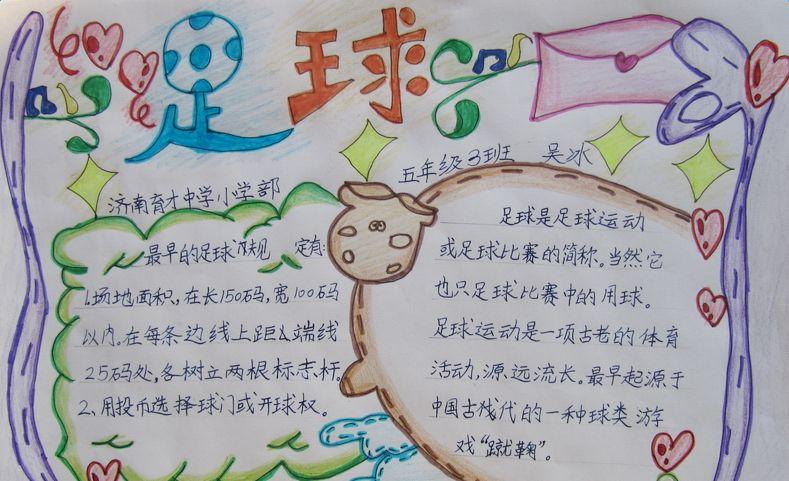 足球
济南育才中学小学部
五年级3班 吴冰
最早的足球 规 定有:
1.场地面积,在长150码,宽100码
以内。在每条边线上距 端线
25码处,各树立两根标志杆。
2、用投币选择球门或开球权。
足球是足球运动
或足球比赛的简称。当然它
也只足球比赛中的用球。
足球运动是一项古老的体育
活动,源远流长。最早起源于
中国古代的一种球类游
戏“蹴鞠”。